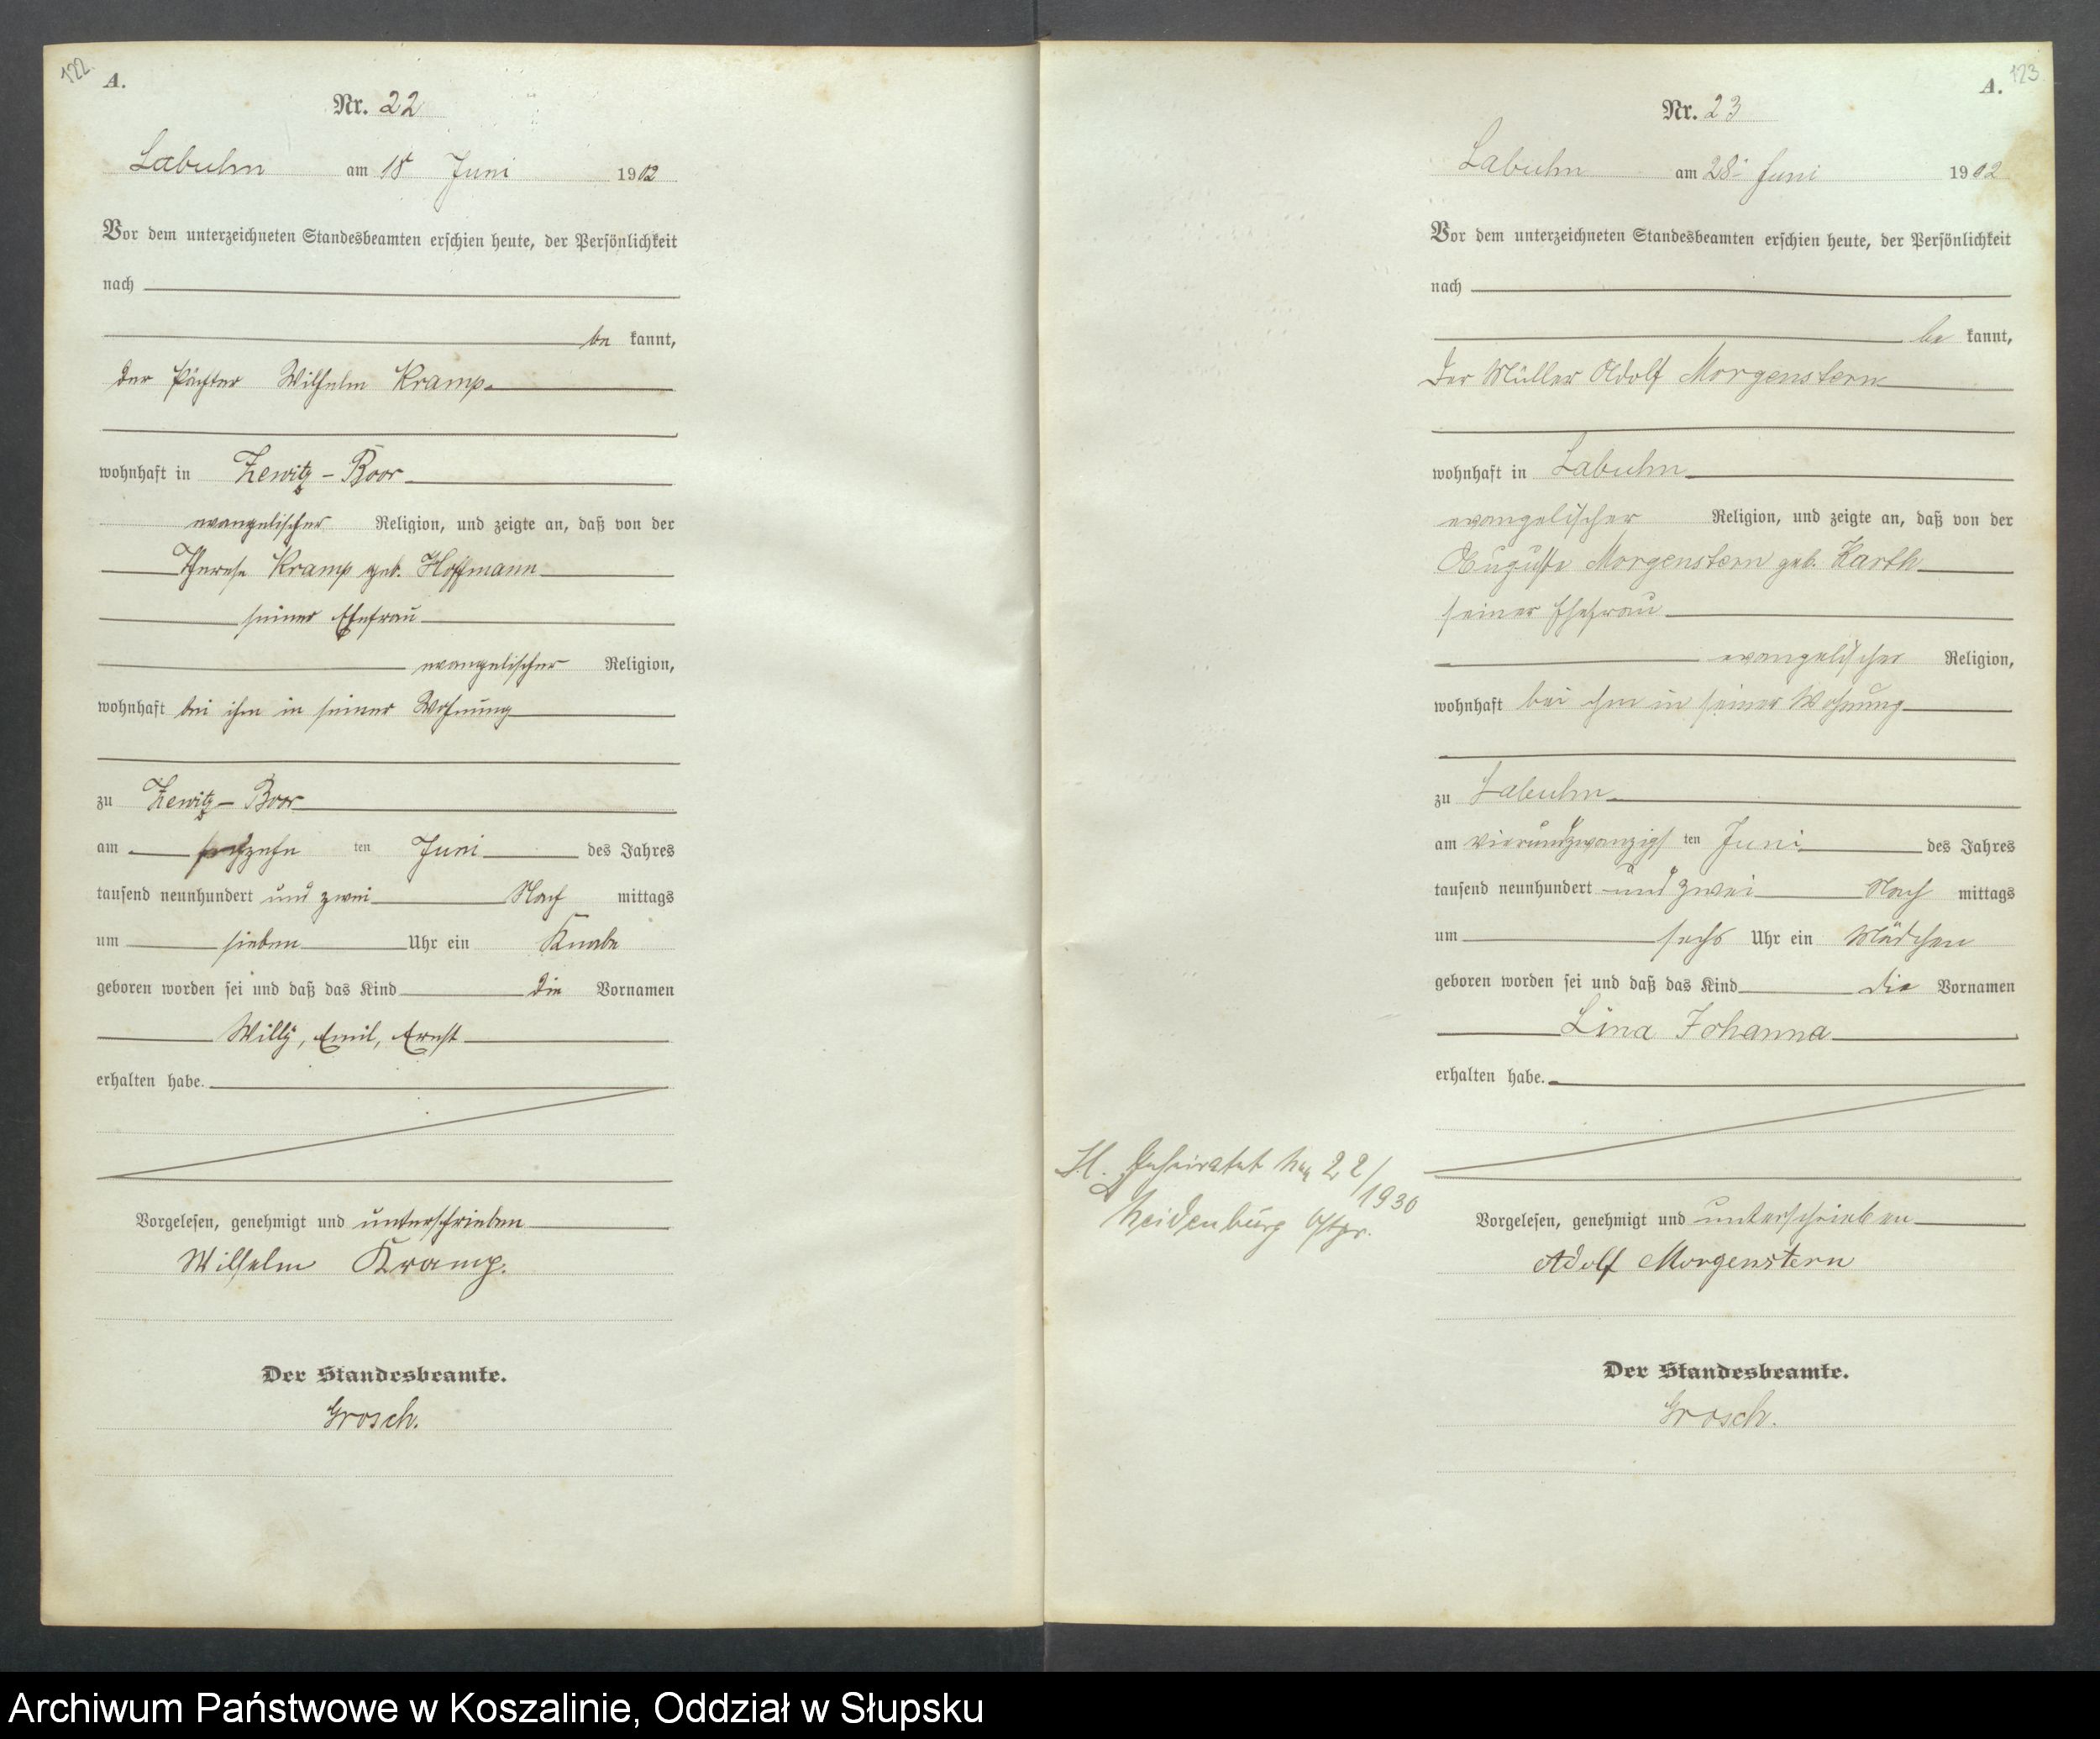 122.
A.
Nr. 22
Labuhn am 18 Juni 1902
Vor dem unterzeichneten Standesbeamten erschien heute, der Persönlichkeit
nach
be kannt,
der Pächter Wilhelm Kramp
wohnhaft in Zewitz-Boor
evangelischer Religion, und zeigte an, daß von der
Therese Kramp geb. Hoffmann
seiner Ehefrau
evangelischer Religion,
wohnhaft bei ihm in seiner Wohnung
zu Zewitz-Boor
am sechzehn ten Juni des Jahres
tausend neunhundert und zwei Nach mittags
um sieben Uhr ein Knabe
geboren worden sei und daß das Kind die Vornamen
Willy, Emil, Ernst
erhalten habe.
Vorgelesen, genehmigt und unterschrieben
Wilhelm Kramp.
Der Standesbeamte.
Grosch.
A. 123
Nr. 23
Labuhn am 28 Juni 1902
Vor dem unterzeichneten Standesbeamten erschien heute, der Persönlichkeit
nach
be kannt,
Der Müller Adolf Morgenstern
wohnhaft in Labuhn
evangelischer Religion, und zeigte an, daß von der
Auguste Morgenstern geb. Karth
seiner Ehefrau
evangelischer Religion,
wohnhaft bei ihm in seiner Wohnung
zu Labuhn
am vierundzwanzigs ten Juni des Jahres
tausend neunhundert und zwei Nach mittags
um sechs Uhr ein Mädchen
geboren worden sei und daß das Kind die Vornamen
Lina Johanna
erhalten habe.
H. Geheiratet 22/1930
Neidenburg Ostpr.
Vorgelesen, genehmigt und unterschrieben
Adolf Morgenstern
Der Standesbeamte.
Grosch.
Archiwum Państwowe w Koszalinie, Oddział w Słupsku